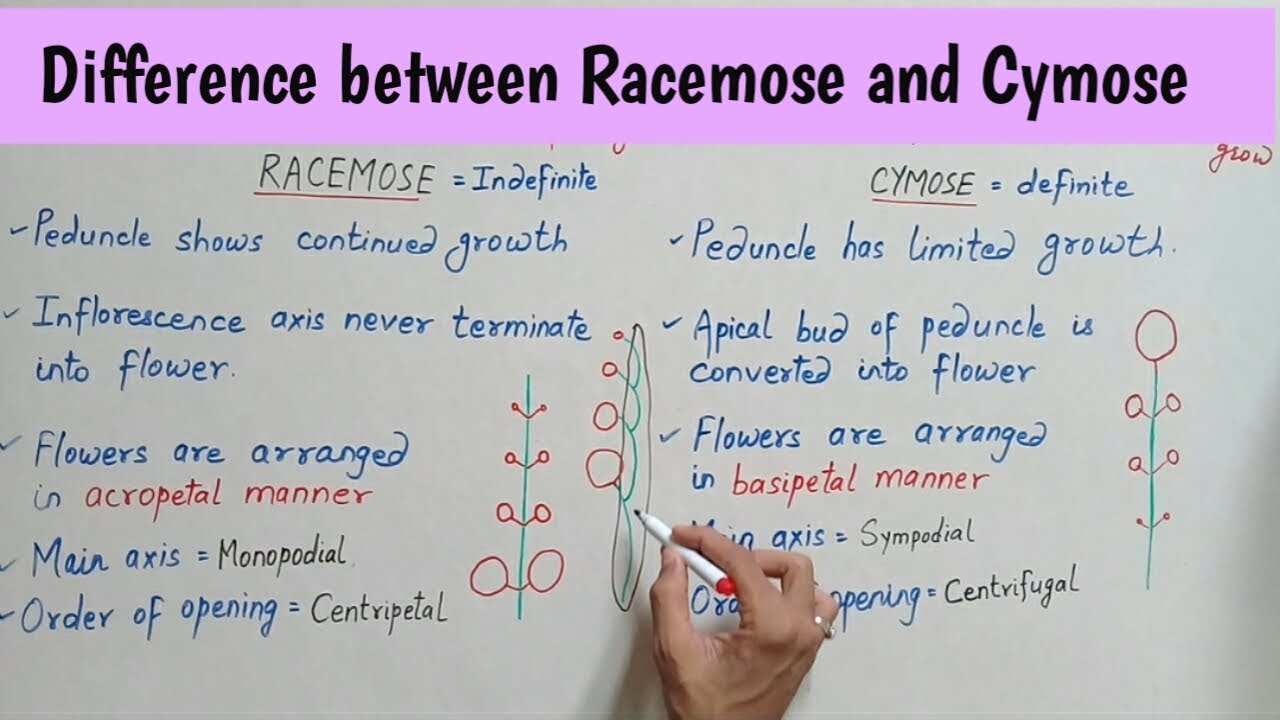 Difference between Racemose and Cymose
grow
RACEMOSE = Indefinite
Peduncle shows continued growth
Inflorescence axis never terminate
into flower.
Flowers are arranged
in acropetal manner
Main axis = Monopodial
Order of opening = Centripetal
CYMOSE = definite
Peduncle has limited growth.
Apical bud of peduncle is
converted into flower
Flowers are arranged
in basipetal manner
axis = Sympodial
opening = Centrifugal